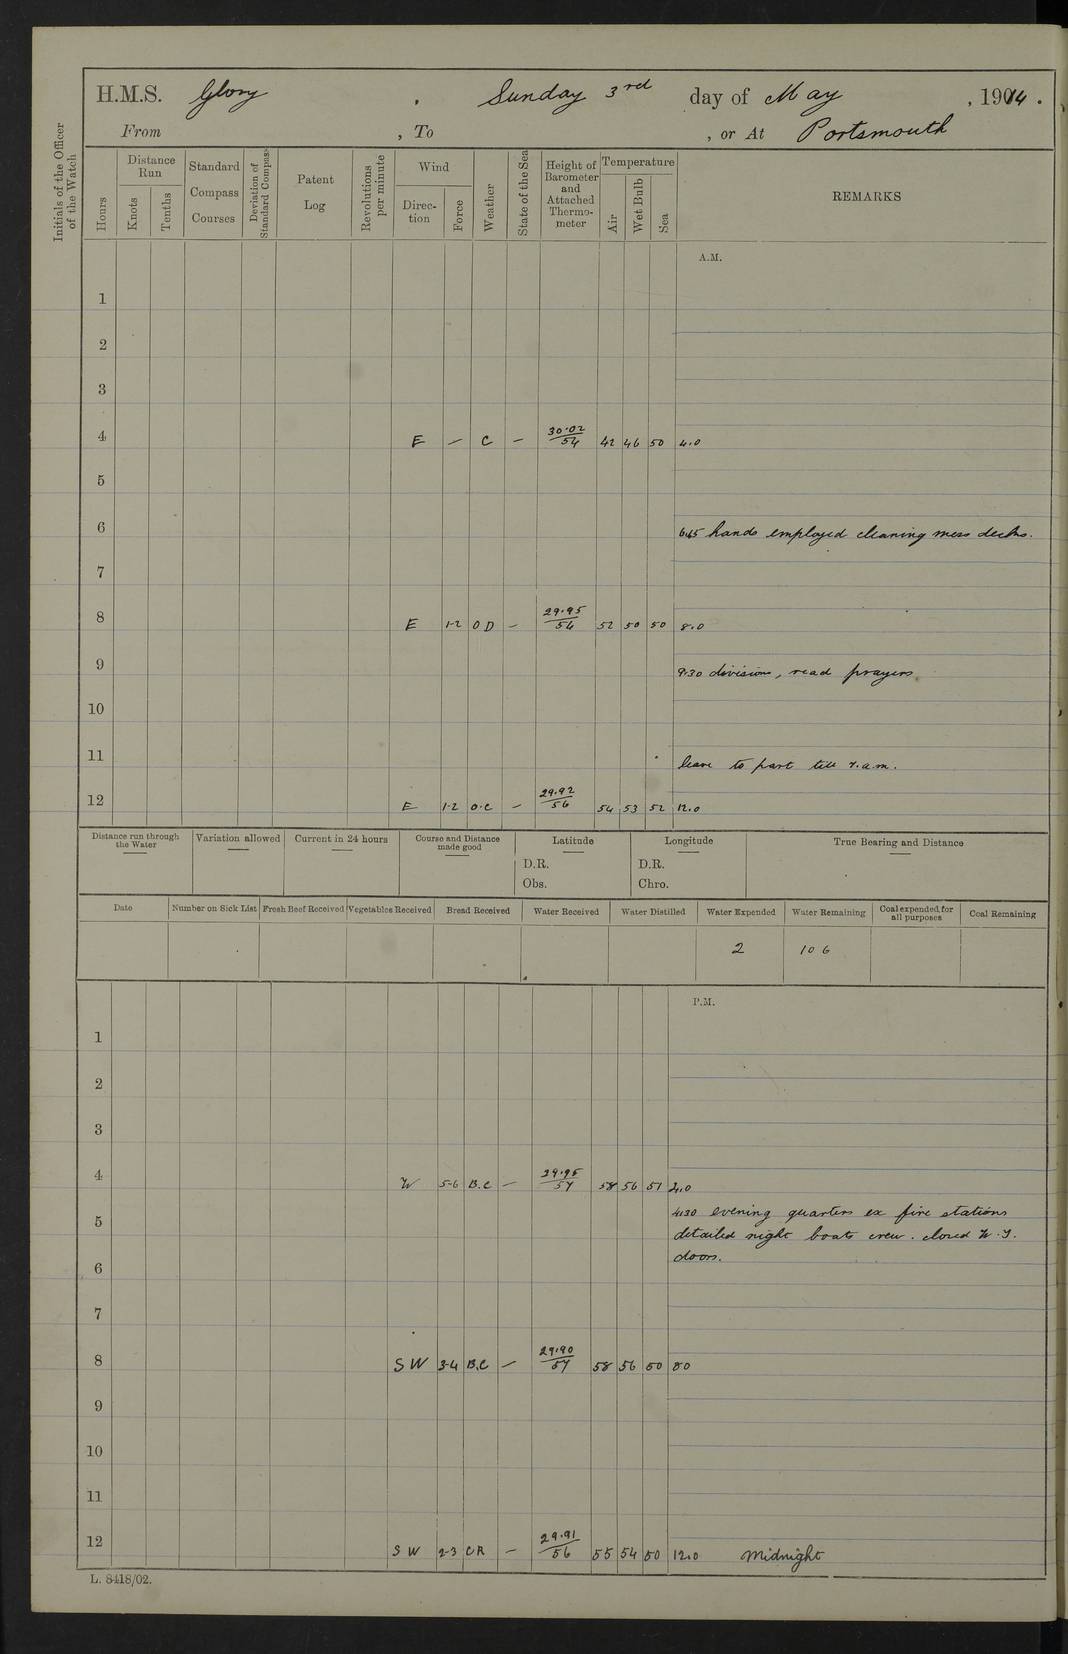 H.M.S. Glory , Sunday 3rd day of May , 1914 .
From , To , or At Portsmouth
Initials of the Officer of the Watch
Hours
Distance Run
Knots
Tenths
Standard Compass Courses
Deviation of Standard Compass
Patent Log
Revolutions per minute
Wind
Direc-tion
Force
Weather
State of the Sea
Height of Barometer and Attached Thermo-meter
Temperature
Air
Wet Bulb
Sea
REMARKS
A.M.
1
2
3
4 E — C — 30.02/54 42 46 50 4.0
5
6 6.45 hands employed cleaning mess decks.
7
8 E 1-2 OD — 29.95/54 52 50 50 8.0
9 9.30 divisions, read prayers
10
11 leave to part till 7.a.m.
12 E 1-2 O.C — 29.92/56 54 53 52 12.0
Distance run through the Water
Variation allowed
Current in 24 hours
Course and Distance made good
Latitude
D.R.
Obs.
Longitude
D.R.
Chro.
True Bearing and Distance
Date
Number on Sick List
Fresh Beef Received
Vegetables Received
Bread Received
Water Received
Water Distilled
Water Expended
Water Remaining
Coal expended for all purposes
Coal Remaining
2 106
P.M.
1
2
3
4 W 5-6 B.C — 29.95/57 58 56 51 4.0
4.30 evening quarters ex fire stations
5 detailed night boats crew. closed W.T.
doors.
6
7
8 SW 3-4 B.C — 29.90/57 58 56 50 80
9
10
11
12 SW 2-3 CR — 29.91/56 55 54 50 12.0 Midnight
L. 8418/02.